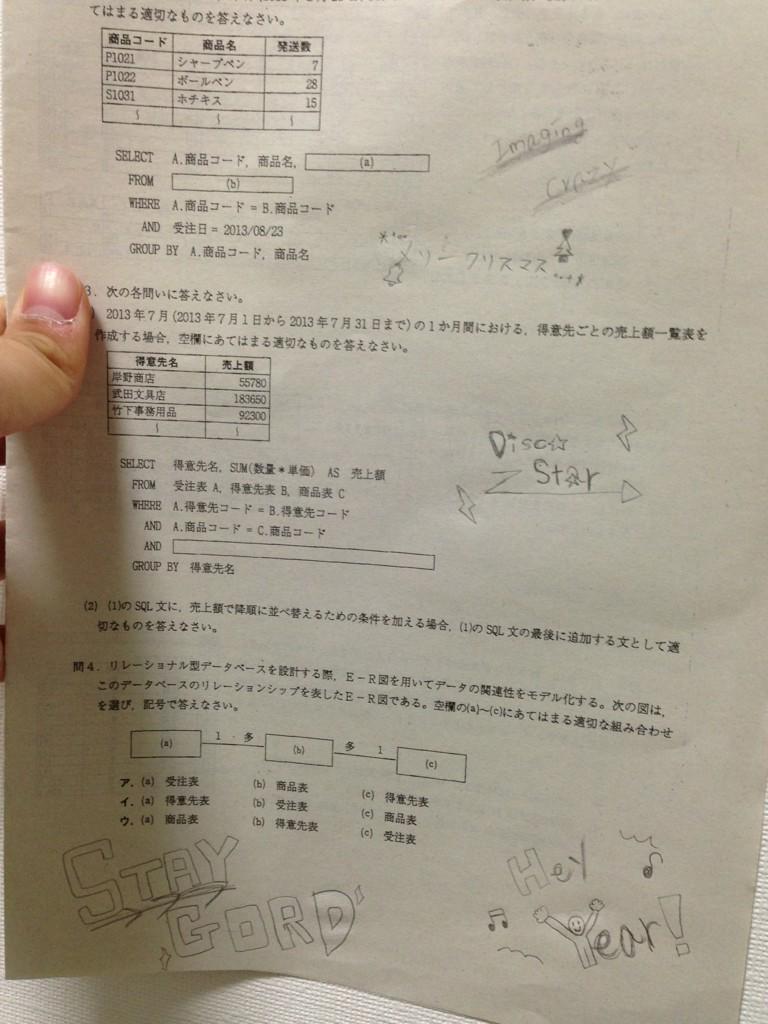 てはまる適切なものを答えなさい。
商品コード 商品名 発送数
P1021 シャープペン 7
P1022 ボールペン 28
S1031 ホチキス 15
〜 〜
SELECT A.商品コード, 商品名, (a)
FROM (b)
WHERE A.商品コード = B.商品コード
AND 受注日 = 2013/08/23
GROUP BY A.商品コード, 商品名
Imaging
Crazy
メリークリスマス
3. 次の各問いに答えなさい。
2013年7月(2013年7月1日から2013年7月31日まで)の1か月間における, 得意先ごとの売上額一覧表を
作成する場合, 空欄にあてはまる適切なものを答えなさい。
得意先名 売上額
岸野商店 55780
武田文具店 183650
竹下事務用品 92300
〜 〜
SELECT 得意先名, SUM(数量*単価) AS 売上額
FROM 受注表 A, 得意先表 B, 商品表 C
WHERE A.得意先コード = B.得意先コード
AND A.商品コード = C.商品コード
AND
GROUP BY 得意先名
Disco☆
Star
(2) (1)のSQL文に, 売上額で降順に並べ替えるための条件を加える場合, (1)のSQL文の最後に追加する文として適
切なものを答えなさい。
問4. リレーショナル型データベースを設計する際, E-R図を用いてデータの関連性をモデル化する。次の図は,
このデータベースのリレーションシップを表したE-R図である。空欄の(a)~(c)にあてはまる適切な組み合わせ
を選び, 記号で答えなさい。
(a) 1 多 (b) 多 1 (c)
ア. (a) 受注表 (b) 商品表 (c) 得意先表
イ. (a) 得意先表 (b) 受注表 (c) 商品表
ウ. (a) 商品表 (b) 得意先表 (c) 受注表
STAY
GORD
Hey
Year!